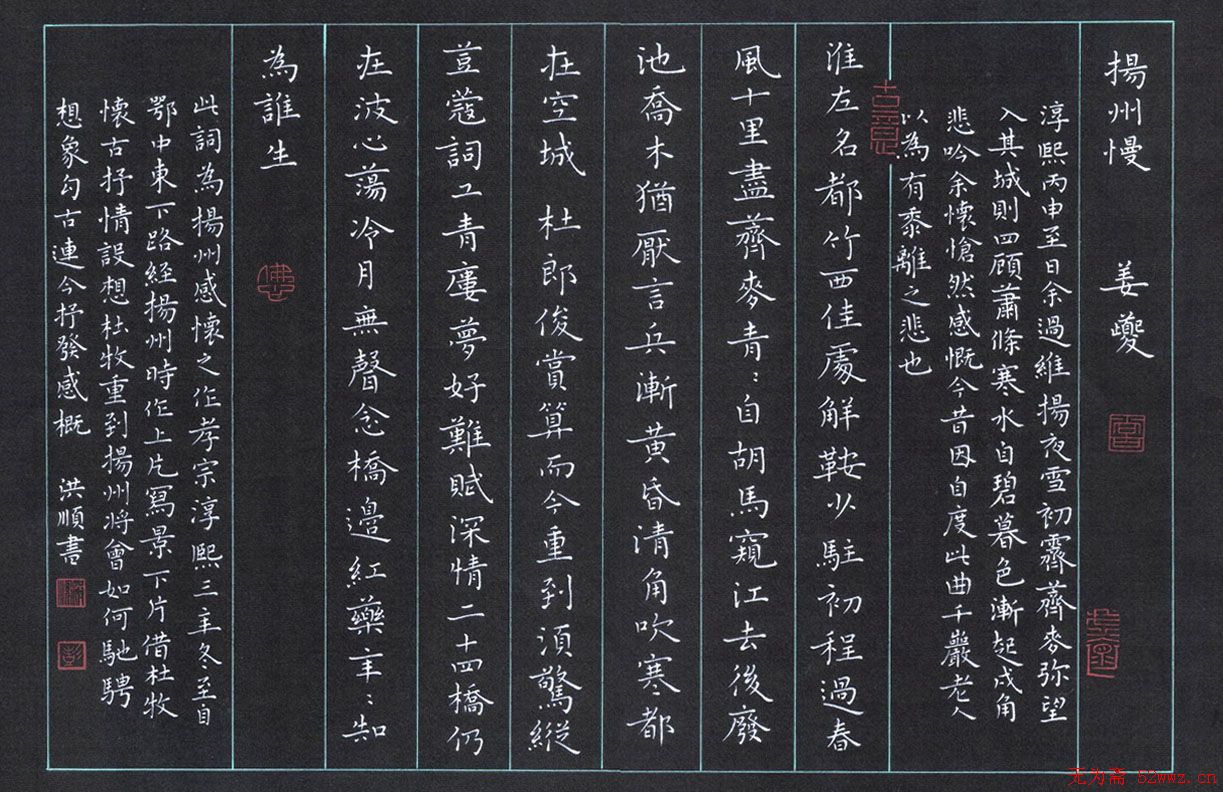 揚州慢 姜夔
淳熙丙申至日余過維揚夜雪初霽薺麥弥望
入其城則四顧蕭條寒水自碧暮色漸起戍角
悲吟余懷愴然感慨今昔因自度此曲千巖老人
以為有黍離之悲也
淮左名都竹西佳處解鞍少駐初程過春
風十里盡薺麥青〻自胡馬窺江去後廢
池喬木猶厭言兵漸黄昏清角吹寒都
在空城 杜郎俊賞算而今重到須驚縱
荳蔻詞工青廔夢好難賦深情二十四橋仍
在波心蕩冷月無聲念橋邊紅藥年〻知
為誰生
此詞為揚州感懷之作孝宗淳熙三年冬至自
鄂中東下路経揚州時作上片寫景下片借杜牧
懷古抒情設想杜牧重到揚州将會如何馳騁
想象勾古連今抒發感概 洪順書
古意
佛
彭
无为斋 52wwz.cn